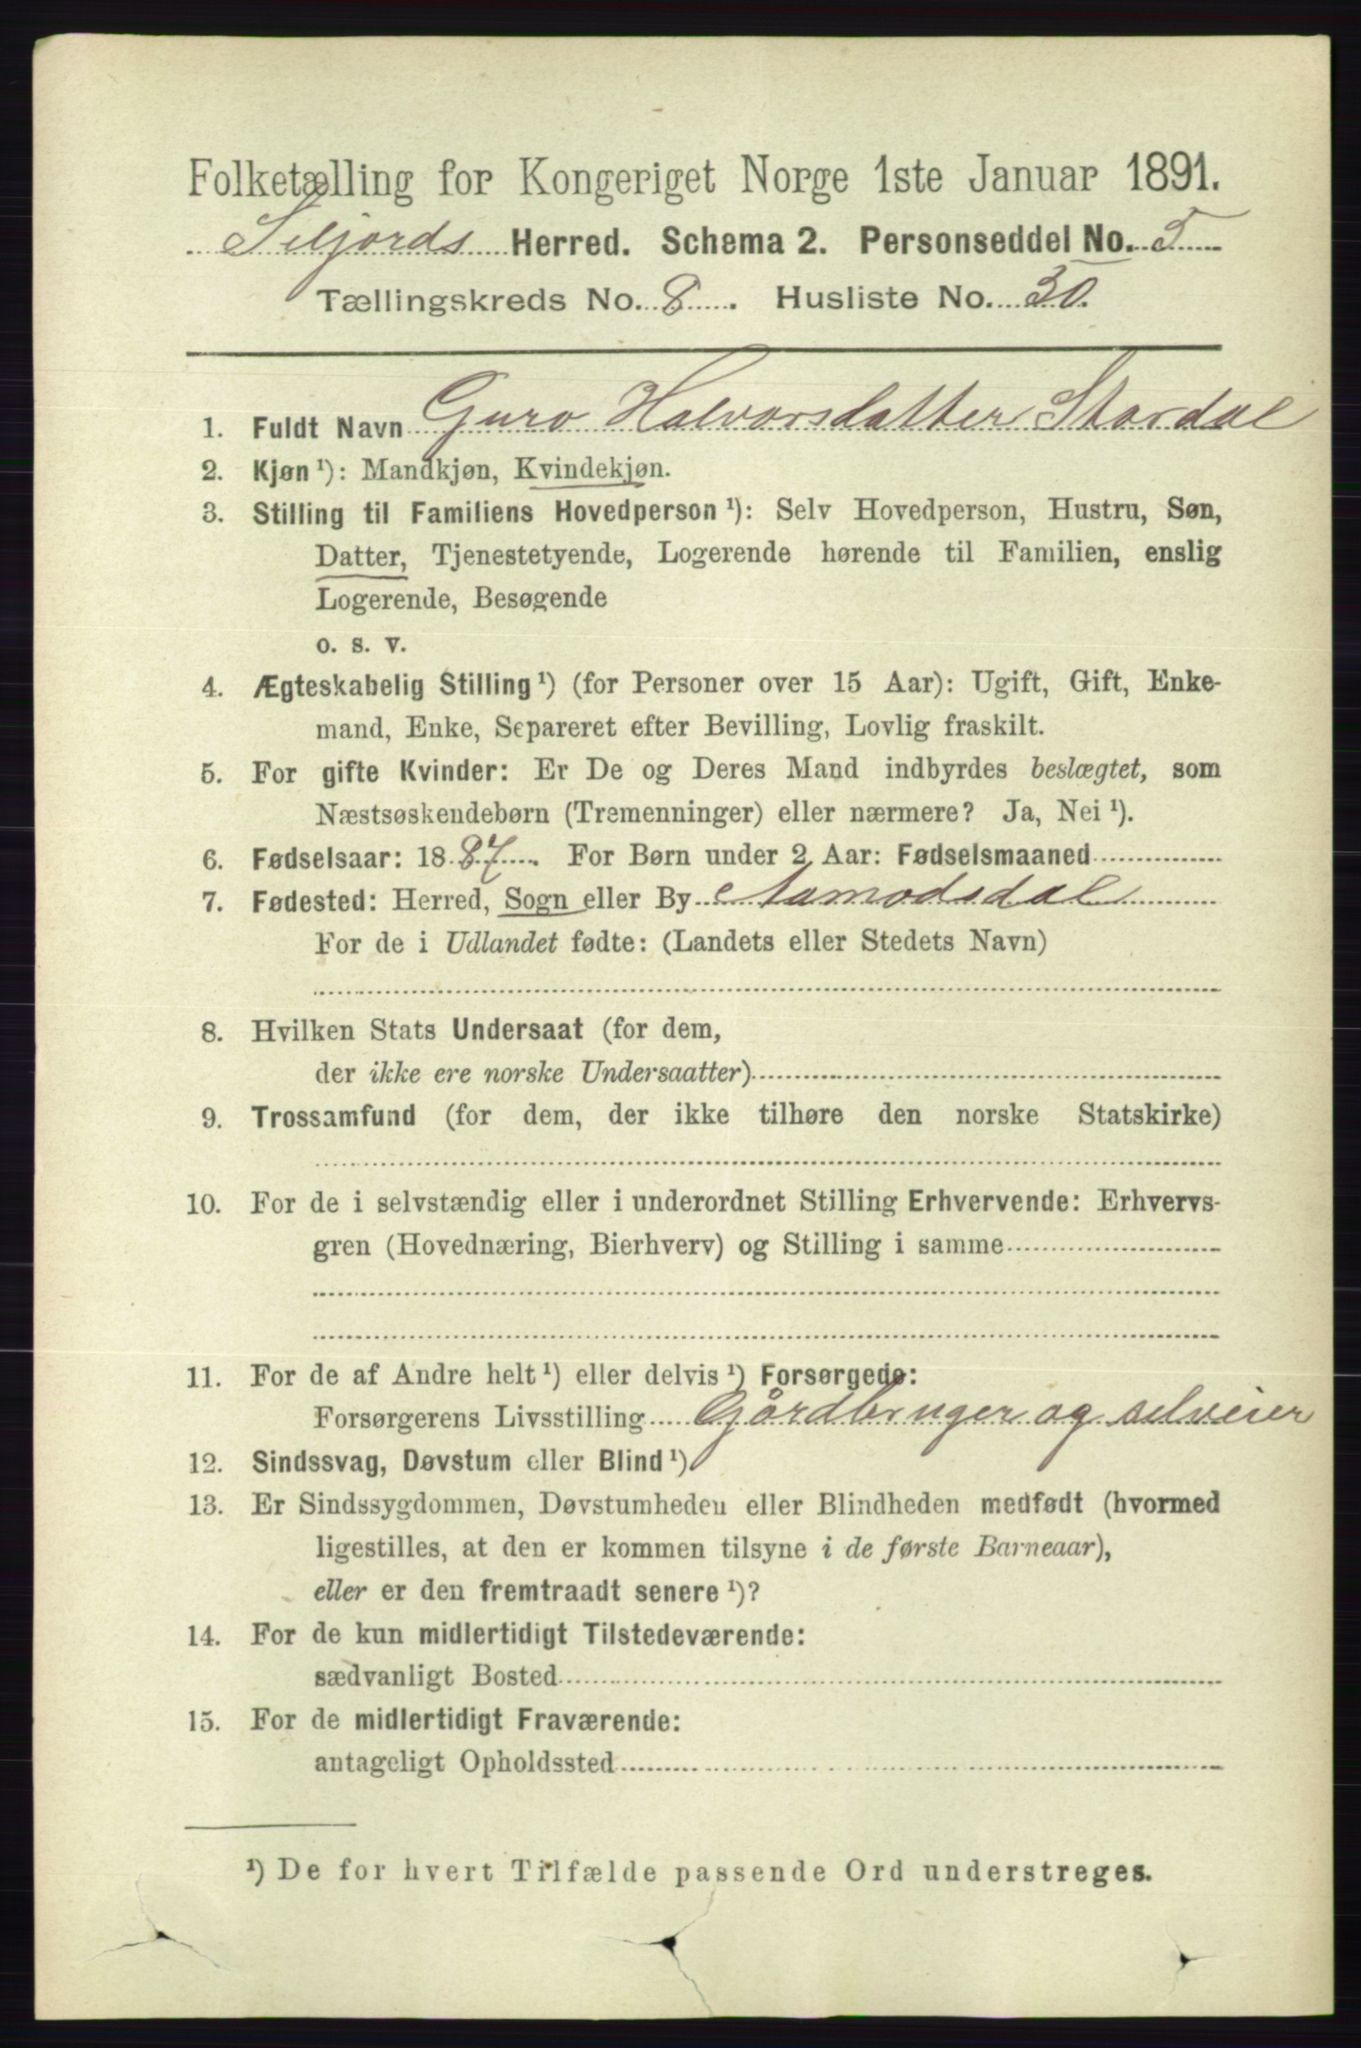 Folketælling for Kongeriget Norge 1ste Januar 1891.
Seljords Herred. Schema 2. Personseddel No. 5
Tællingskreds No. 8. Husliste No. 30.
1. Fuldt Navn Guro Halvorsdatter Stordal
2. Kjøn ¹): Mandkjøn, Kvindekjøn.
3. Stilling til Familiens Hovedperson ¹): Selv Hovedperson, Hustru, Søn,
Datter, Tjenestetyende, Logerende hørende til Familien, enslig
Logerende, Besøgende
o. s. v.
4. Ægteskabelig Stilling ¹) (for Personer over 15 Aar): Ugift, Gift, Enke-
mand, Enke, Separeret efter Bevilling, Lovlig fraskilt.
5. For gifte Kvinder: Er De og Deres Mand indbyrdes beslægtet, som
Næstsøskendebørn (Tremenninger) eller nærmere? Ja, Nei ¹).
6. Fødselsaar: 1887. For Børn under 2 Aar: Fødselsmaaned
7. Fødested: Herred, Sogn eller By Aamodsdal
For de i Udlandet fødte: (Landets eller Stedets Navn)
8. Hvilken Stats Undersaat (for dem,
der ikke ere norske Undersaatter)
9. Trossamfund (for dem, der ikke tilhøre den norske Statskirke)
10. For de i selvstændig eller i underordnet Stilling Erhvervende: Erhvervs-
gren (Hovednæring, Bierhverv) og Stilling i samme
11. For de af Andre helt ¹) eller delvis ¹) Forsørgede:
Forsørgerens Livsstilling Gårdbruger og selveier
12. Sindssvag, Døvstum eller Blind ¹)
13. Er Sindssygdommen, Døvstumheden eller Blindheden medfødt (hvormed
ligestilles, at den er kommen tilsyne i de første Barneaar),
eller er den fremtraadt senere ¹)?
14. For de kun midlertidigt Tilstedeværende:
sædvanligt Bosted
15. For de midlertidigt Fraværende:
antageligt Opholdssted
¹) De for hvert Tilfælde passende Ord understreges.